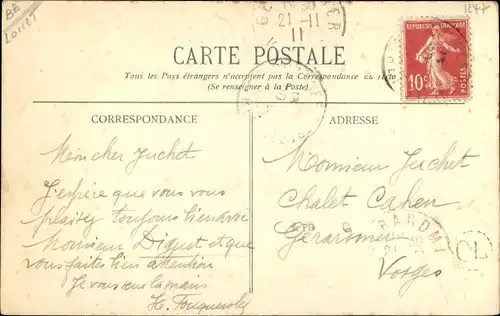 BA
LOIRET
1247
21-11
11
REPUBLIQUE FRANÇAISE
10c
POSTES
CARTE POSTALE
Tous les Pays étrangers n'acceptent pas la Correspondance au recto
(Se renseigner à la Poste)
CORRESPONDANCE
ADRESSE
Mon cher Juchet
J'espère que vous vous
plaisez toujours bien avec
Monsieur Diguet et que
vous faites bien attention
Je vous serre la main
Monsieur Juchet
Chalet Cahen
Gérardmer
Vosges